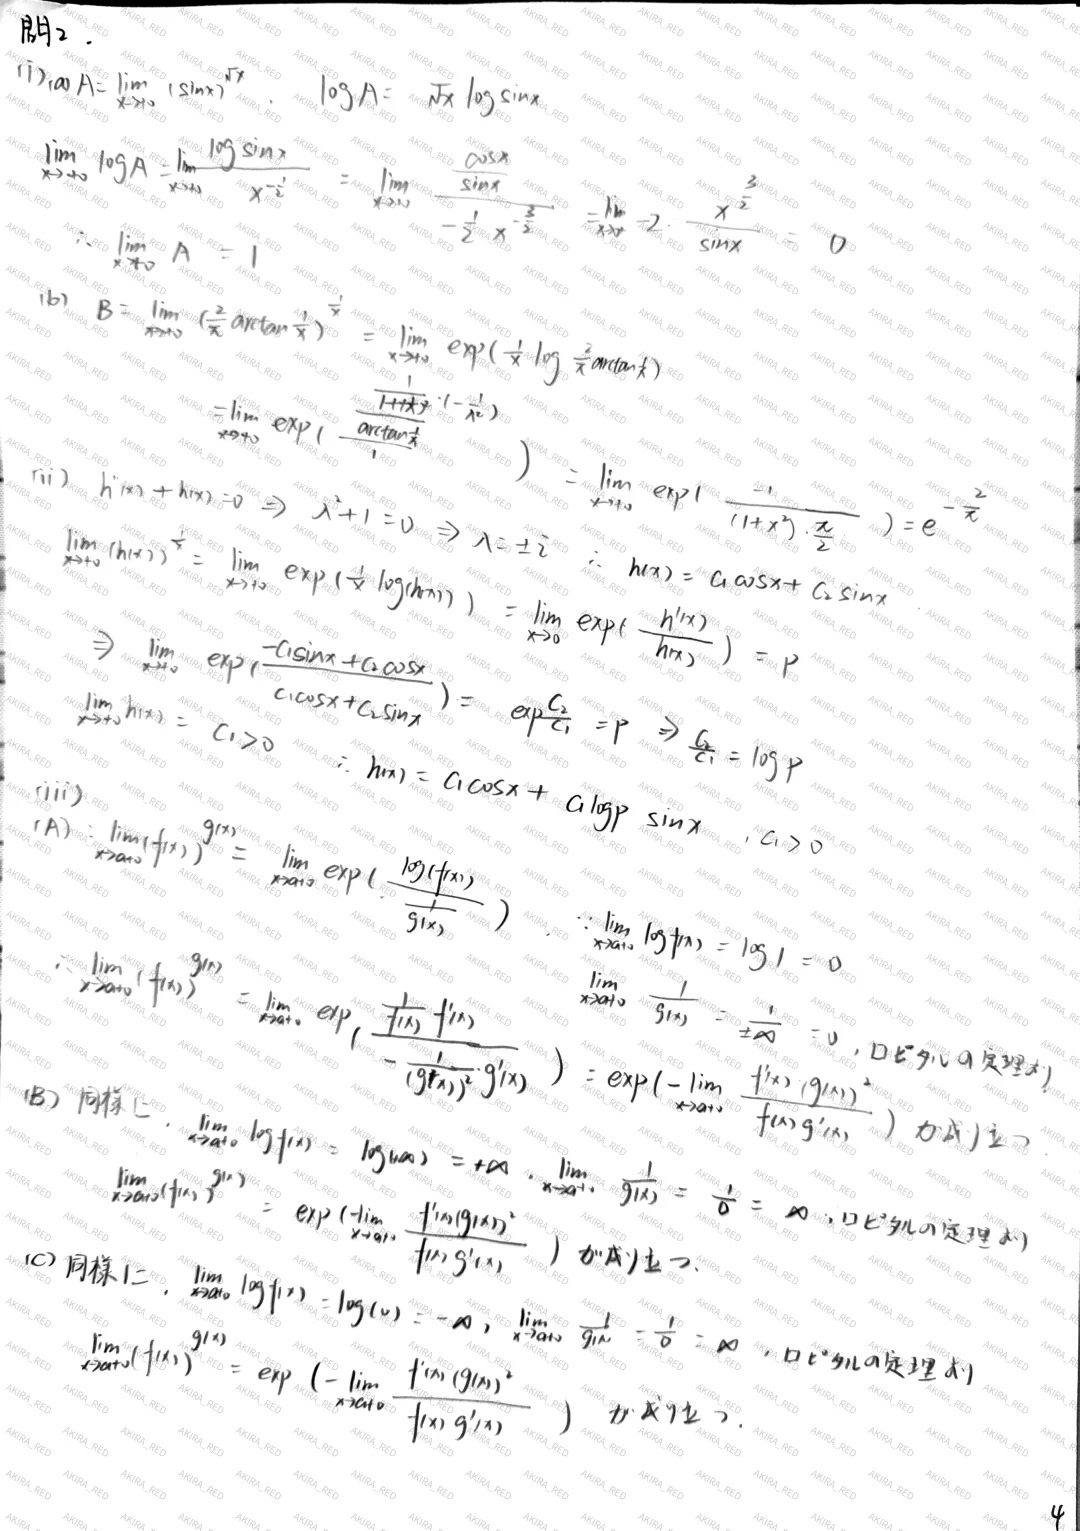 問2.
(i)(a) A = lim_{x→+0} (sinx)^{√x}. log A = √x log sinx
lim_{x→+0} log A = lim_{x→+0} \frac{log sinx}{x^{-\frac{1}{2}}} = lim_{x→+0} \frac{\frac{cosx}{sinx}}{-\frac{1}{2} x^{-\frac{3}{2}}} = lim_{x→+0} -2 · \frac{x^{\frac{3}{2}}}{sinx} = 0
∴ lim_{x→+0} A = 1
(b) B = lim_{x→+0} (\frac{2}{π} arctan \frac{1}{x})^{\frac{1}{x}} = lim_{x→+0} exp(\frac{1}{x} log \frac{2}{π} arctan \frac{1}{x})
= lim_{x→+0} exp( \frac{\frac{\frac{1}{1+(\frac{1}{x})^2} · (-\frac{1}{x^2})}{arctan \frac{1}{x}}}{1} ) = lim_{x→+0} exp( \frac{-1}{(1+x^2) · \frac{π}{2}} ) = e^{-\frac{2}{π}}
(ii) h''(x) + h(x) = 0 ⇒ λ^2 + 1 = 0 ⇒ λ = ±i ∴ h(x) = C_1 cosx + C_2 sinx
lim_{x→+0} (h(x))^{\frac{1}{x}} = lim_{x→+0} exp(\frac{1}{x} log(h(x))) = lim_{x→0} exp( \frac{h'(x)}{h(x)} ) = p
⇒ lim_{x→+0} exp( \frac{-C_1 sinx + C_2 cosx}{C_1 cosx + C_2 sinx} ) = exp \frac{C_2}{C_1} = p ⇒ \frac{C_2}{C_1} = log p
lim_{x→+0} h(x) = C_1 > 0 ∴ h(x) = C_1 cosx + C_1 log p sinx , C_1 > 0
(iii)
(A) ∵ lim_{x→a+0} (f(x))^{g(x)} = lim_{x→a+0} exp( \frac{log(f(x))}{\frac{1}{g(x)}} ) . ∵ lim_{x→a+0} log f(x) = log 1 = 0
lim_{x→a+0} \frac{1}{g(x)} = \frac{1}{±∞} = 0 , ロピタルの定理より
∴ lim_{x→a+0} (f(x))^{g(x)} = lim_{x→a+0} exp( \frac{\frac{1}{f(x)} f'(x)}{-\frac{1}{(g(x))^2} · g'(x)} ) = exp( - lim_{x→a+0} \frac{f'(x) (g(x))^2}{f(x) g'(x)} ) が成り立つ
(B) 同様に. lim_{x→a+0} log f(x) = log(+∞) = +∞ . lim_{x→a+0} \frac{1}{g(x)} = \frac{1}{0} = ∞ , ロピタルの定理より
lim_{x→a+0} (f(x))^{g(x)} = exp( - lim_{x→a+0} \frac{f'(x) (g(x))^2}{f(x) g'(x)} ) が成り立つ.
(C) 同様に. lim_{x→a+0} log f(x) = log(0) = -∞ , lim_{x→a+0} \frac{1}{g(x)} = \frac{1}{0} = ∞ , ロピタルの定理より
lim_{x→a+0} (f(x))^{g(x)} = exp ( - lim_{x→a+0} \frac{f'(x) (g(x))^2}{f(x) g'(x)} ) が成り立つ.
4
AKIRA_RED